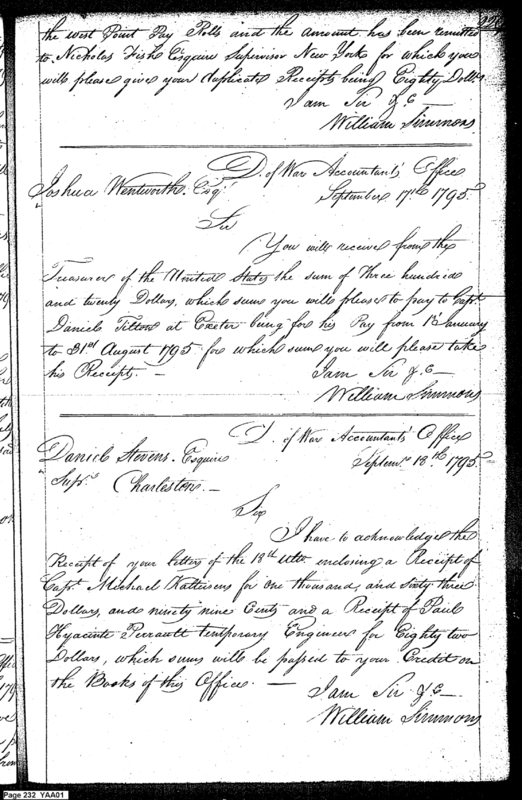 the West Point Pay Rolls and the amount has been remitted
to Nicholas Fish Esquire Supervisor New York for which you
will please give your duplicate Receipts being Eighty Dolls
I am Sir &c
William Simmons
D. of War Accountants Office
Joshua Wentworth Esqr.
September 17th 1795
Sir
You will receive from the
Treasurer of the United States the sum of Three hundred
and twenty Dollars, which sum you will please to pay to Capt
Daniel Tilton at Exeter being for his Pay from 1st January
to 31st August 1795 for which sum you will please take
his Receipt. —
I am Sir &c —
William Simmons
D. of War Accountants Office
Daniel Stevens. Esquire
Septemr. 18th. 1795
Supr. Charleston. —
Sir
I have to acknowledge the
Receipt of your letters of the 18th Ulto. enclosing a Receipt of
Capt. Michael Kalteisens for One thousand, and sixty three
Dollars, and ninety nine Cents and a Receipt of Paul
Hyacinte Perrault temporary Engineer for Eighty two
Dollars, which sums will be passed to your Credit on
the Books of this Office. —
I am Sir &c —
William Simmons
Page 232 YAA01